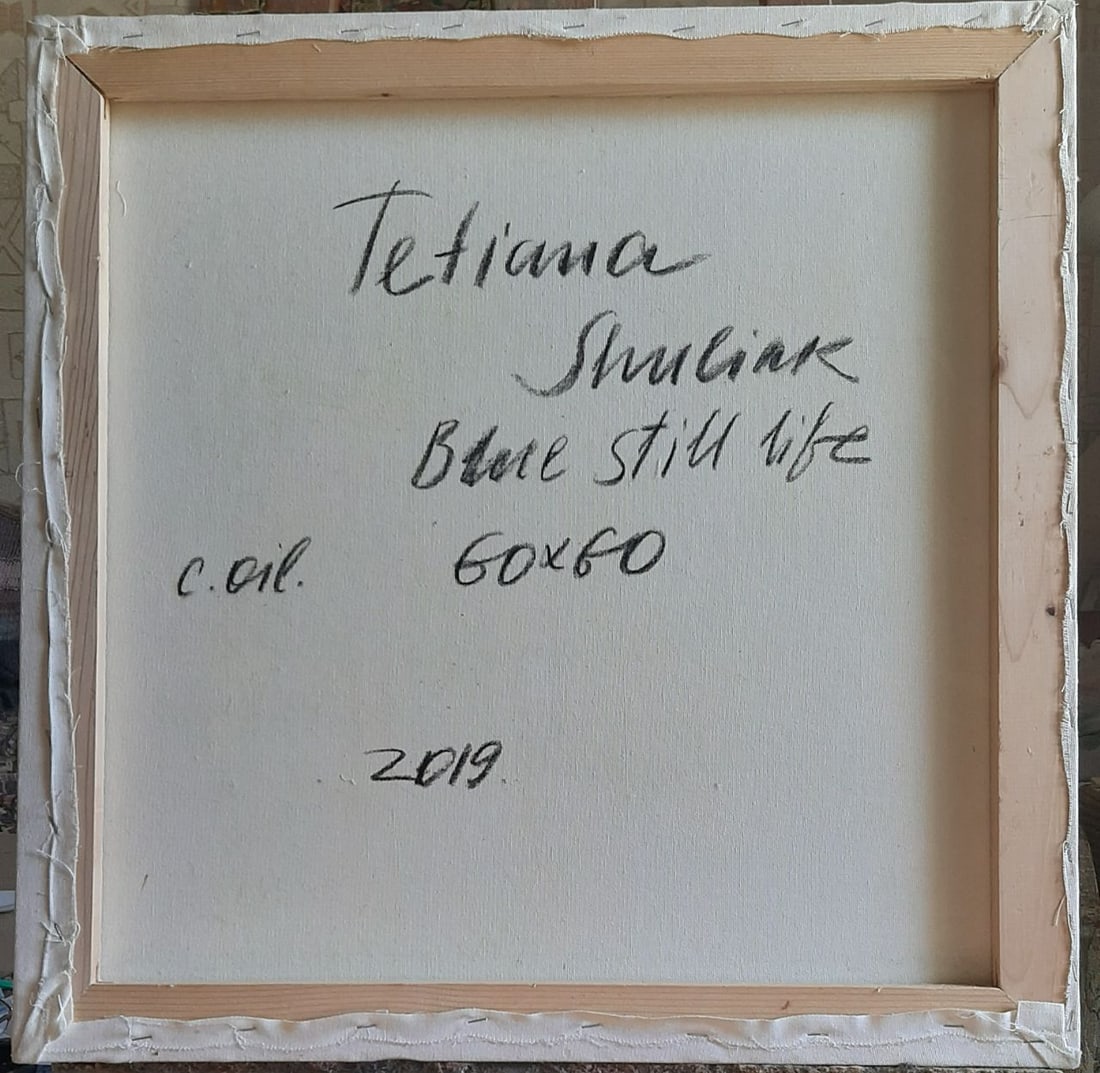 Tetiana
Shuliak
Blue still life
c. oil. 60x60
2019